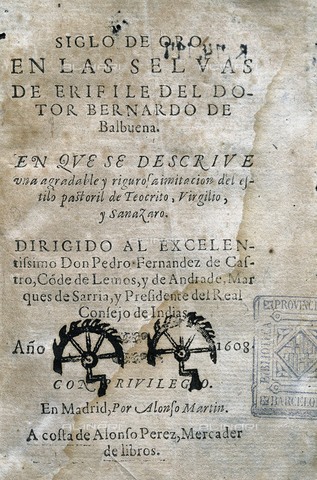 SIGLO DE ORO,
EN LAS SELVAS
DE ERIFILE DEL DO-
TOR BERNARDO DE
Balbuena.
EN QVE SE DESCRIVE
vna agradable y rigurosa imitacion del es-
tilo pastoril de Teocrito, Virgilio,
y Sanazaro.
DIRIGIDO AL EXCELEN-
tissimo Don Pedro Fernandez de Cas-
tro, Cõde de Lemos, y de Andrade, Mar
ques de Sarria, y Presidente del Real
Consejo de Indias.
Año 1608.
CON PRIVILEGIO.
En Madrid, Por Alonso Martin.
A costa de Alonso Perez, Mercader
de libros.
BIBLIOTECA
PROVINCI
BARCELO